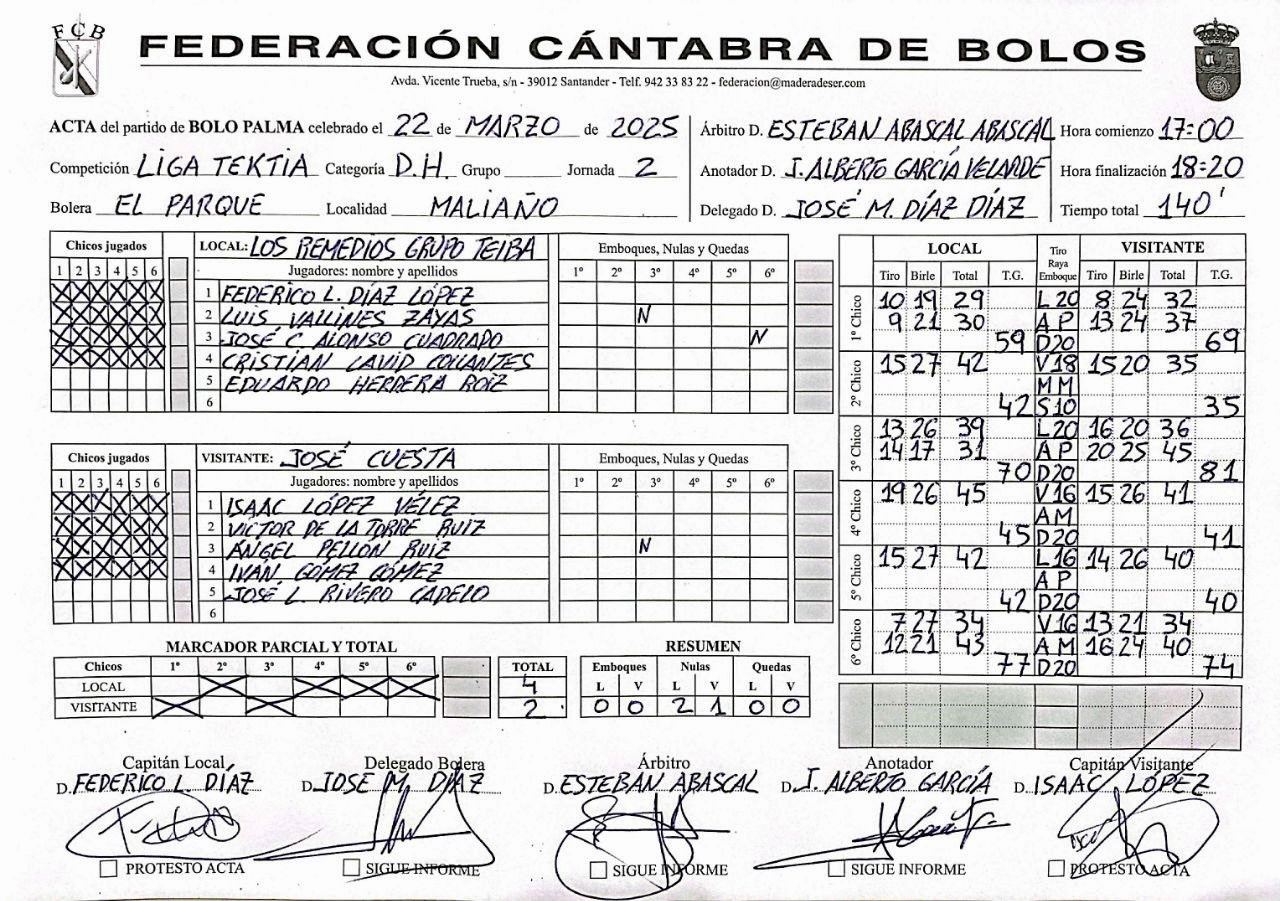 FCB
FEDERACIÓN CÁNTABRA DE BOLOS
Avda. Vicente Trueba, s/n - 39012 Santander - Telf. 942 33 83 22 - federacion@maderadeser.com
ACTA del partido de BOLO PALMA celebrado el 22 de MARZO de 2025
Competición LIGA TEKTIA Categoría D.H. Grupo Jornada 2
Bolera EL PARQUE Localidad MALIAÑO
Árbitro D. ESTEBAN ABASCAL ABASCAL Hora comienzo 17:00
Anotador D. J. ALBERTO GARCÍA VELARDE Hora finalización 18:20
Delegado D. JOSÉ M. DÍAZ DÍAZ Tiempo total 140'
Chicos jugados LOCAL: LOS REMEDIOS GRUPO TEIBA Emboques, Nulas y Quedas
1 2 3 4 5 6 Jugadores: nombre y apellidos 1º 2º 3º 4º 5º 6º
X X X X X X 1 FEDERICO L. DÍAZ LÓPEZ
X X X X X X 2 LUIS VALLINES ZAYAS N
X X X X X X 3 JOSÉ C. ALONSO CUADRADO N
X X X X X X 4 CRISTIAN LAVID COLLANTES
5 EDUARDO HERRERA ROIZ
6
Chicos jugados VISITANTE: JOSÉ CUESTA Emboques, Nulas y Quedas
1 2 3 4 5 6 Jugadores: nombre y apellidos 1º 2º 3º 4º 5º 6º
X X X X X X 1 ISAAC LÓPEZ VÉLEZ
X X X X X X 2 VICTOR DE LA TORRE RUIZ
X X X X X X 3 ÁNGEL PELLON RUIZ N
X X X X X X 4 IVÁN GÓMEZ GÓMEZ
5 JOSÉ L. RIVERO CADELO
6
LOCAL Tiro Raya Emboque VISITANTE
Tiro Birle Total T.G. Tiro Birle Total T.G.
1º Chico 10 19 29 L20 8 24 32
9 21 30 A P 13 24 37
59 D20 69
2º Chico 15 27 42 V18 15 20 35
M M
42 S10 35
3º Chico 13 26 39 L20 16 20 36
14 17 31 A P 20 25 45
70 D20 81
4º Chico 19 26 45 V16 15 26 41
A M
45 D20 41
5º Chico 15 27 42 L16 14 26 40
A P
42 D20 40
6º Chico 7 27 34 V16 13 21 34
12 21 43 A M 16 24 40
77 D20 74
MARCADOR PARCIAL Y TOTAL
Chicos 1º 2º 3º 4º 5º 6º TOTAL
LOCAL X X X X 4
VISITANTE X X 2
RESUMEN
Emboques Nulas Quedas
L V L V L V
0 0 2 1 0 0
Capitán Local Delegado Bolera Árbitro Anotador Capitán Visitante
D. FEDERICO L. DÍAZ D. JOSE M. DÍAZ D. ESTEBAN ABASCAL D. J. ALBERTO GARCÍA D. ISAAC LÓPEZ
PROTESTO ACTA SIGUE INFORME SIGUE INFORME SIGUE INFORME PROTESTO ACTA